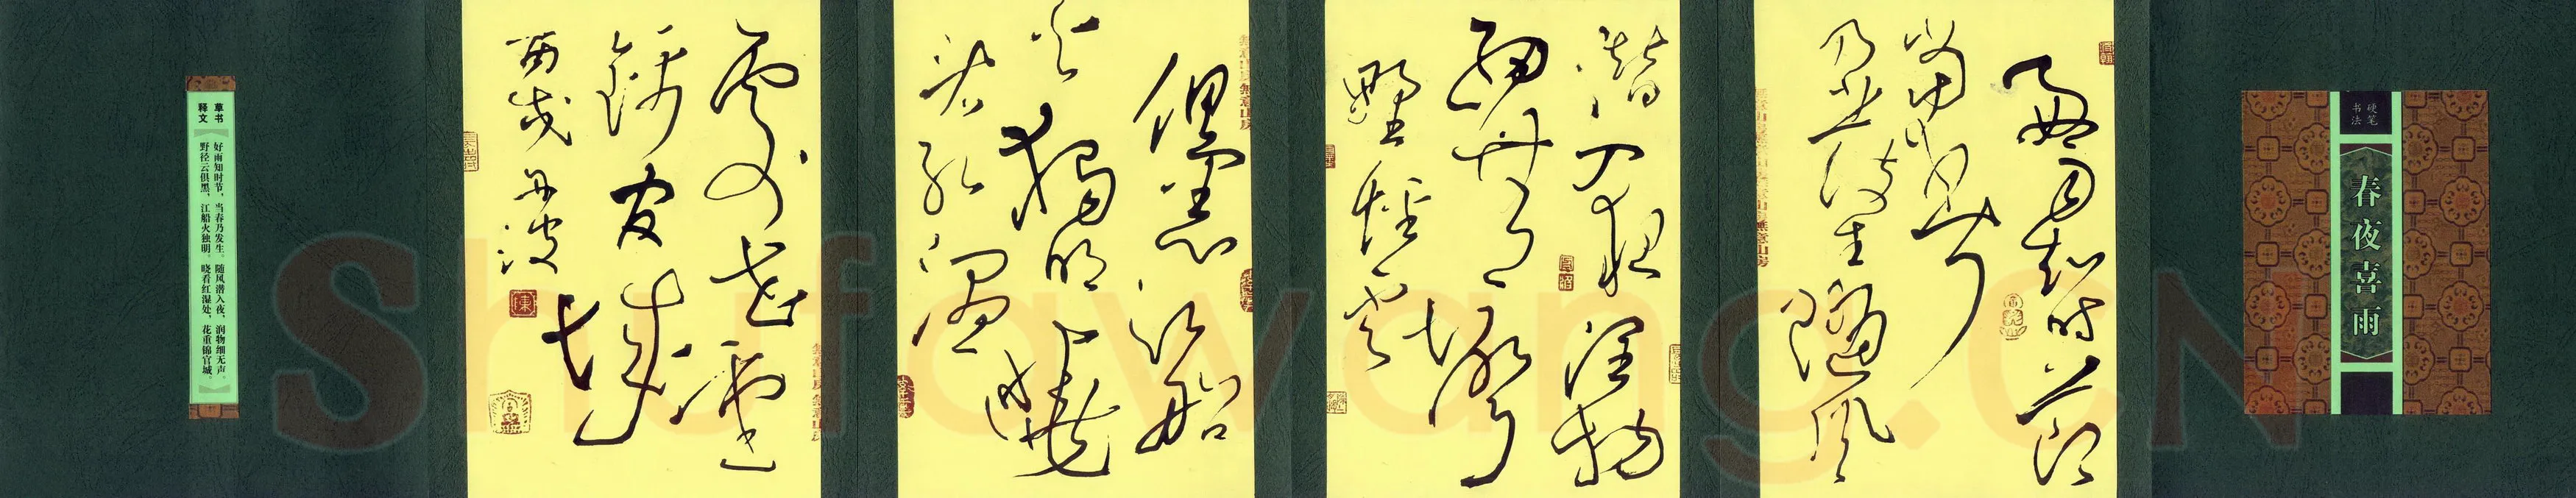 硬笔
书法
春夜喜雨
好雨知时节
當春
乃發生隨風
潛入夜潤物
細無聲
野徑雲
俱黑江船
火獨明曉
看紅濕
處花重
錦官城
草书
释文
【好雨知时节，当春乃发生。随风潜入夜，润物细无声。
野径云俱黑，江船火独明。晓看红湿处，花重锦官城。】
Shufawang.CN